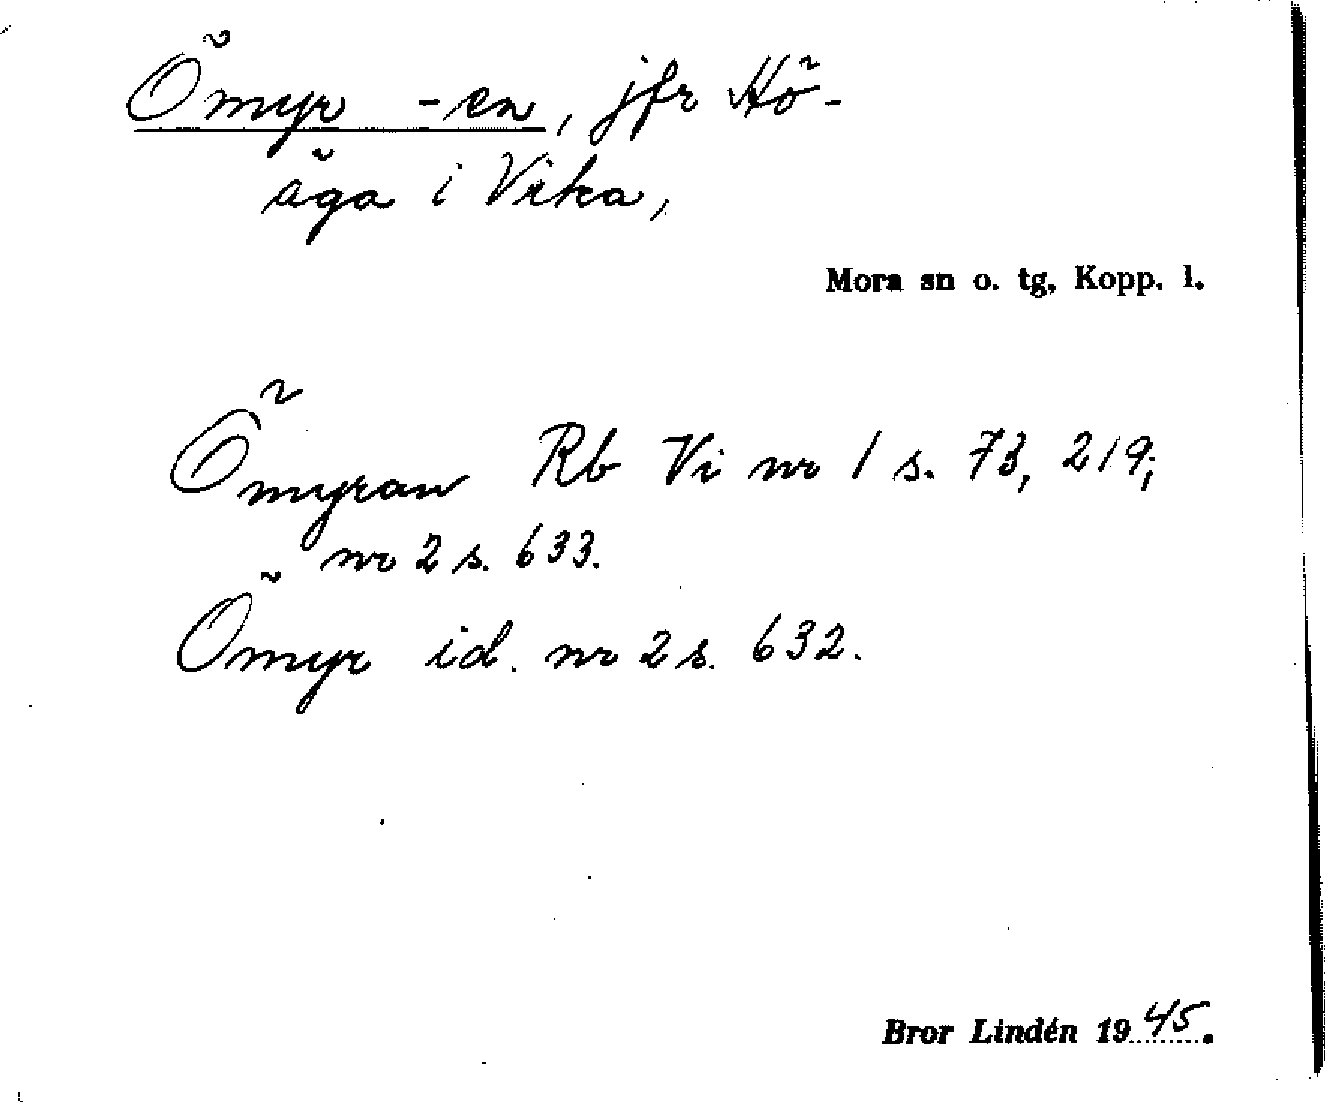 Ömyr -en, jfr Hö-
äga i Vika,
Mora sn o. tg, Kopp. l.
Ömyran Rb Vi nr 1 s. 73, 219;
nr 2 s. 633.
Ömyr id. nr 2 s. 632.
Bror Lindén 1945.